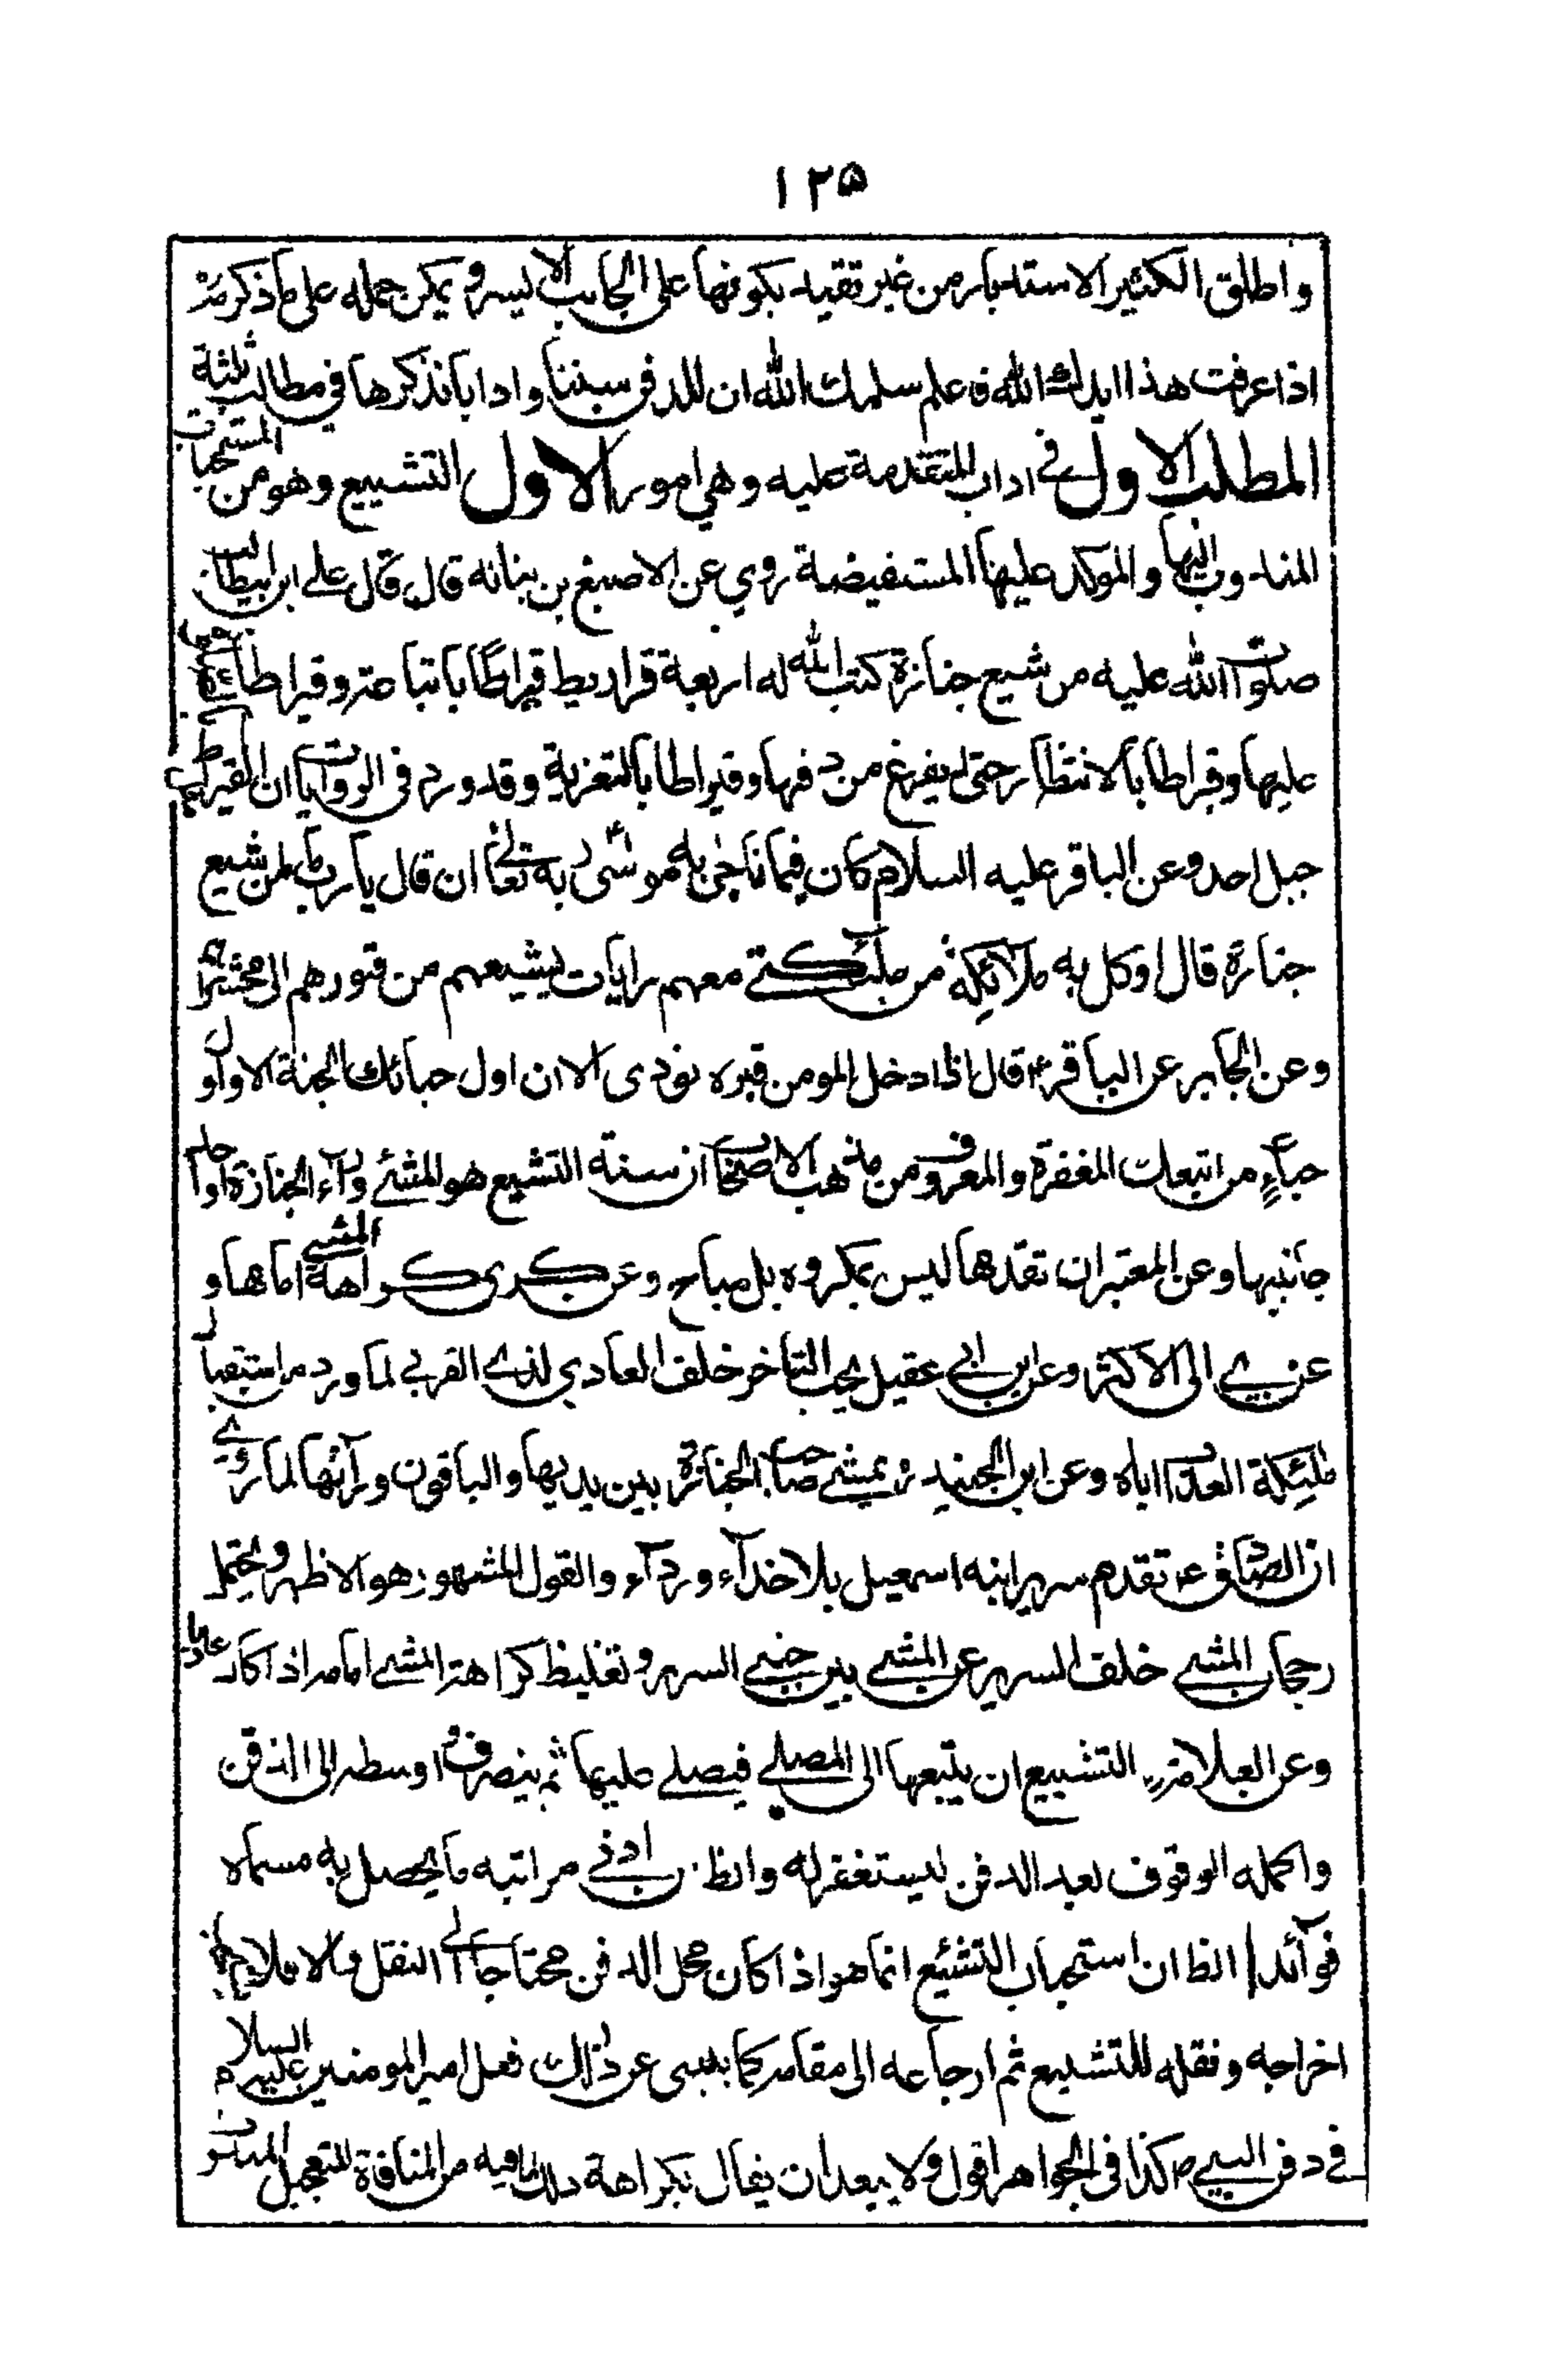 ١٢٥
واطلق الكثير الاستدبار من غير تقييد بكونها على الجانب الايسر ويمكن حمله على ما ذكر مر
اذا عرفت هذا ايدك الله فاعلم سلمك الله ان للدفن سننا وادابا نذكرها في مطالب ثلثة
المطلب الاول في اداب المتقدمة عليه وهي امور الاول التشييع وهو من المستحبات
المندوب اليها والموكد عليها المستفيضة روي عن الاصبغ بن بناته قال قال علي ابن ابيطالب
صلوات الله عليه من شيع جنازة كتب الله له اربعة قراريط قيراطا باتباعه وقيراطا
عليها وقيراطا بالانتظار حتى يفرغ من دفنها وقيراطا بالتعزية وقد ورد في الروايات ان القيراط
جبل احد وعن الباقر عليه السلام كان فيما ناجى به موسى ربه تعالى ان قال يا رب لمن شيع
جنازة قال اوكل به ملائكة من ملئكتي معهم رايات يشيعهم من قبورهم الى محشرهم
وعن الجابر عن الباقر ع قال اذا دخل المومن قبره نودى الا ان اول حبائك الجنة الا واول
حباء من اتبعك المغفرة والمعروف من مذهب الاصحاب ان سنة التشييع هو المشي وراء الجنازة او احد
جانبيها وعن المعتبر ان تقدمها ليس بمكروه بل مباح وعن كرى كراهة المشي امامها و
عزي الى الاكثر وعن ابن ابي عقيل يجب التاخر خلف المعادي لذي القربى لما ورد من استقبال
ملئكة العذاب اياه وعن ابن الجنيد يمشي صاحب الجنازة بين يديها والباقون ورائها لما روي
ان الصادق ع تقدم سرير ابنه اسمعيل بلا حذاء ورداء والقول المشهور هو الاظهر ويحتمل
رجحان المشي خلف السرير عن المشي بين جنبي السرير وتغليظ كراهة المشي امامه اذا كان
وعن العلامة التشييع ان يتبعها الى المصلى فيصلي عليها ثم ينصرف واوسطه الى الدفن
واكمله الوقوف بعد الدفن ليستغفر له والظ ان ادنى مراتبه ما يحصل به مسماه
فوائد الظ ان استحباب التشييع انما هو اذا كان محل الدفن محتاجا الى النقل والا فلا
اخراجه ونقله للتشييع ثم ارجاعه الى مقامه كما ينبىء عن ذلك فعل امير المومنين عليه السلام
في دفن النبي ص كذا في الجواهر اقول ولا يبعد ان يقال بكراهة ذلك لما فيه من المنافاة للتعجيل